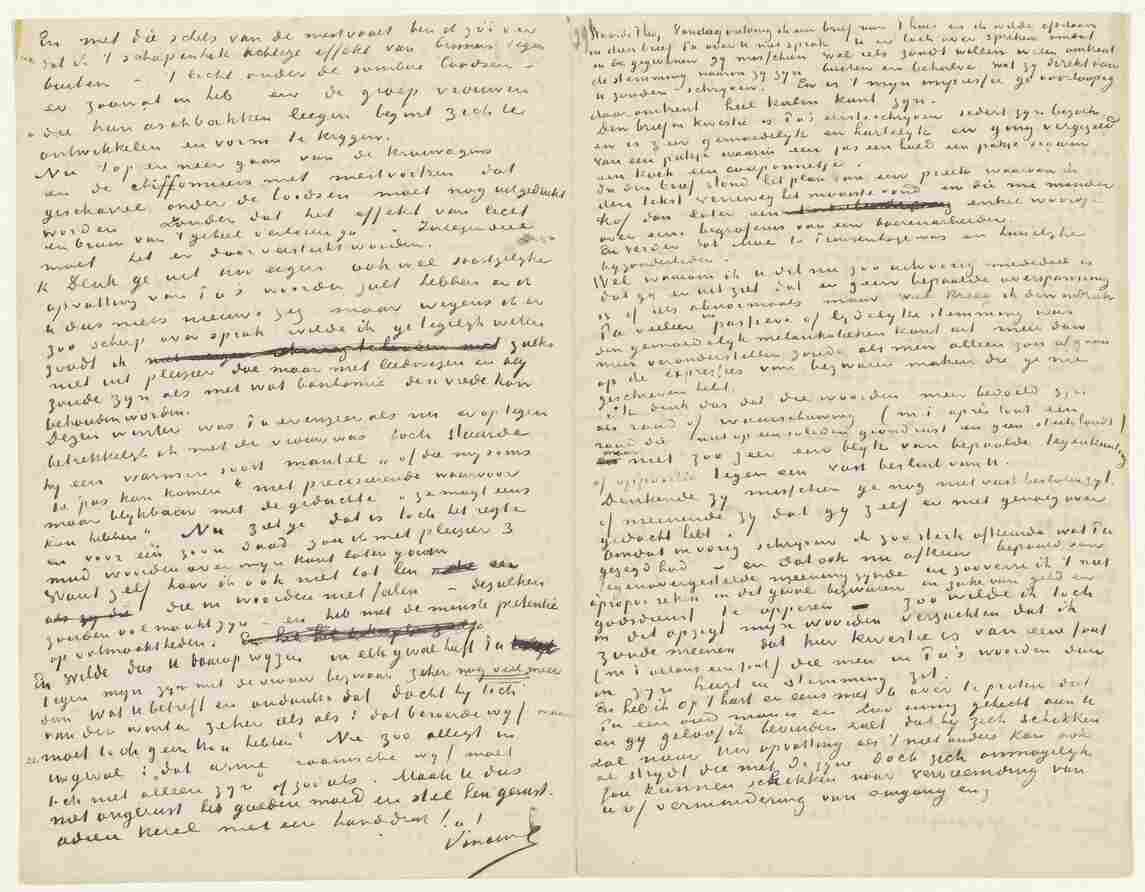 En met die schets van de mestvaalt ben ik zóó ver
dat dit 't schapenstalachtige effekt van binnen tegen
buiten – 't licht onder de sombere loodsen –
er zoowat in heb en de groep vrouwen
die hun aschbakken leegen begint zich te
ontwikkelen en vorm te krijgen.
Nu 't op en neer gaan van de kruiwagens
en de chiffonniers met mestvorken dat
gescharrel onder de loodsen moet nog uitgedrukt
worden zonder dat het effekt van licht
en bruin van 't geheel verloren ga.
moet het er door versterkt worden.
k Denk ge uit uw eigen ook wel soortgelijke
opvatting van Pa's woorden zult hebben en ik
U dus niets nieuws zeg maar wegens ik er
zoo scherp over sprak wilde ik ge tegelijk weten
zoudt ik zulks
niet uit plezier doe maar met leedwezen en blij
zoude zijn als met wat bonhomie de vrede kon
behouden worden.
Dezen winter was Pa evenzeer als nu er op tegen
betrekkelijk ik met de vrouw was toch stuurde
hij een warmen soort mantel "of die mij soms
te pas kon komen" niet preciseerende waarvoor
maar blijkbaar met de gedachte "ze mogt eens
kou hebben". Nu ziet ge dat is toch het regte
en voor één zoon daad zou ik met pleizier 3
mud woorden over mijn kant laten gaan
Want zelf hoor ik ook niet tot een
die in woorden niet falen – dezulken
zouden volmaakt zijn – en heb niet de minste pretentie
op volmaaktheden.
En wilde dus U daarop wijzen in elk geval heeft Pa
tegen mijn zijn met de vrouw bezwaar zeker nog veel meer
dan wat U betreft en ondanks dat dacht hij toch
van den winter zeker als als: dat beroerde wijf maar
moet toch geen kou hebben. Nu zoo allegt in
Uw geval: "dat arme roomsche wijf moet
toch niet alleen zijn" of zoo iets. Maak U dus
niet ongerust heb goeden moed en stel hen gerust.
adieu kerel met een handdruk t.à t.
Vincent
Waarde Theo, Vandaag ontving ik een brief van t huis en ik wilde ofschoon
in dien brief Pa over U niet sprak U er toch over spreken omdat
in de gegeven gij misschien wel iets zoudt willen weten omtrent
de stemming waarin zij zijn buiten en behalve wat zij direkt aan
U zouden schrijven. En is 't mijn impressie ge voorloopig
daaromtrent heel kalm kunt zijn.
Den brief in kwestie is Pa's eerste schrijven sedert zijn bezoek
en is zeer gemoedelijk en hartelijk en ging vergezeld
van een pakje waarin een jas een hoed een pakje sigaren
een koek een couponnetje.
In den brief stond het plan van een preek waarvan ik
den tekst verreweg het mooiste vond en die me minder
trof dan later een enkel woordje
over eene begrafenis van een boerenarbeider.
En verder dat Moe te Prinsenhage was en huiselijke
bijzonderheden.
Wel waarom ik U dit nu zoo uitvoerig mededeel is
dat gij er uit ziet dat er geen bepaalde overspanning
is of iets abnormaals maar ik den indruk
Pa veeleer in passieve of lijdelijke stemming was
den gemoedelijk melankolieken kant uit meer dan
men veronderstellen zoude als men alleen zou afgaan
op de expressies van bezwaren maken die ge me
geschreven hebt.
Ik denk dus dat die woorden meer bedoeld zijn
als raad of waarschuwing (m.i. après tout een
raad die niet op een soliden grond rust en geen steek houdt)
maar niet zoo zeer een blijk van bepaalde tegenkanting
of oppositie tegen een vast besluit van U.
Denkende zij misschien ge nog niet vast besloten zijt
of meenende zij dat gij zelf er niet genoeg over
gedacht hebt.
Omdat in vorig schrijven ik zoo sterk afkeurde wat Pa
gezegd had – en dat ook nu afkeur bepaald van
tegenovergestelde meening zijnde in zooverre ik 't niet
àpropos reken in dit geval bezwaren in zake van geld en
godsdienst te opperen – zoo wilde ik toch
in dit opzigt mijn woorden verzachten dat ik
zoude meenen dat hier kwestie is van een fout
(m.i. althans een fout) die meer in Pa's woorden dan
in zijn hart en stemming zit.
En heb ik op 't hart er eens met U over te praten dat
Pa een oud man is en zoo innig gehecht aan U
en gij geloof ik bevinden zult dat hij zich schikken
zal naar Uw opvatting als 't niet anders kan ook
al strijdt die met de zijne doch zich onmogelijk
zou kunnen schikken naar vervreemding van
U of vermindering van omgang enz